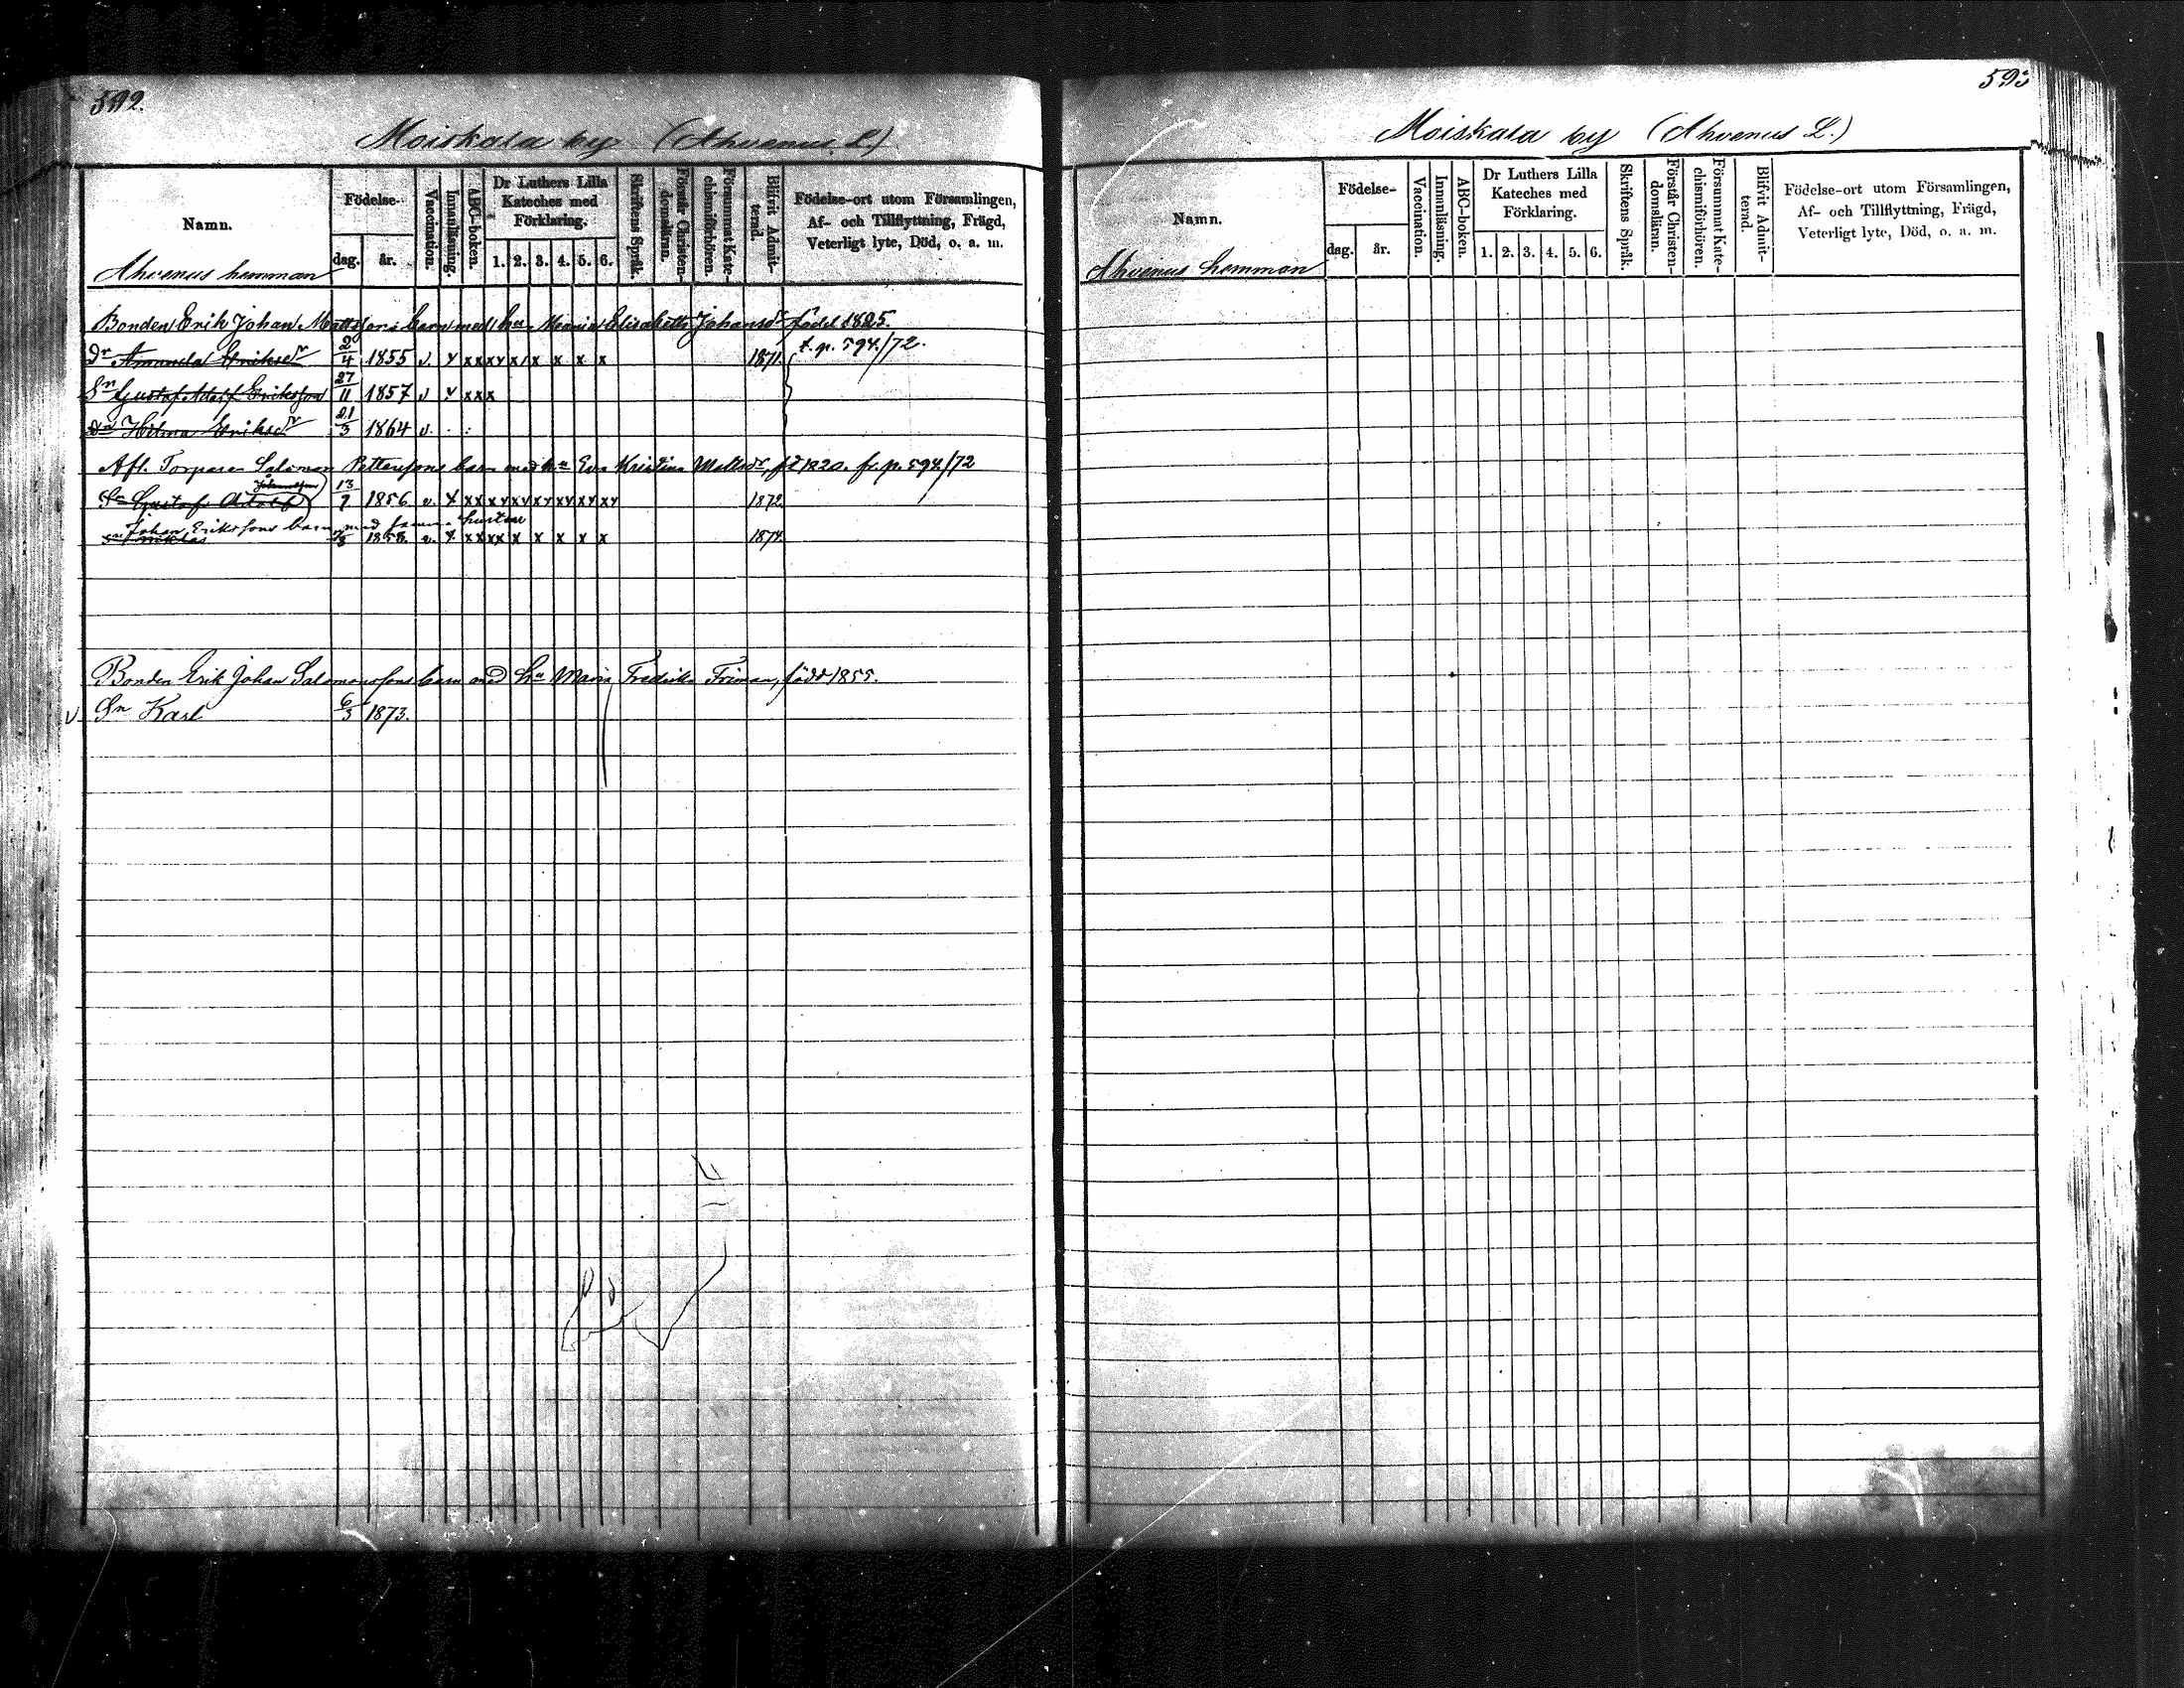 592.
Moiskala by (Ahvenus L.)
Namn.
Födelse-
dag. år.
Vaccination.
Innanläsning.
ABC-boken.
Dr Luthers Lilla
Kateches med
Förklaring.
1. 2. 3. 4. 5. 6.
Skriftens Språk.
Förstår Christen-
domsläran.
Försummat Kate-
chismiförhören.
Blifvit Admit-
terad.
Födelse-ort utom Församlingen,
Af- och Tillflyttning, Frägd,
Veterligt lyte, Död, o. a. m.
Ahvenus hemman
Bonden Erik Johan Mattssons barn med hu Maria Elisabeth Johansdr född 1825.
Dr Amanda Eriksdr 2/4 1855 v. x xx xx x x x x x 1871. t. p. 594./72.
Sn Gustaf Adolf Eriksson 27/11 1857 v x xxx
Dr Hilma Eriksdr 21/3 1864 v.
Afl. Torparen Salomon Pettersons barn med hu Eva Kristina Mattsdr, fd 1820. fr. p. 594/72
Sn Gustaf Adolf 13/7 1856 v. x xx xx xx xx xx xx xx 1872
Johan Erikssons barn med samma hustru
1858. v. x xx xx x x x x x 1874
Bonden Erik Johan Salomonssons barn med hu Maria Fredrika Friman, född 1855.
v Sn Karl 6/3 1873.
593
Moiskala by (Ahvenus L.)
Namn.
Födelse-
dag. år.
Vaccination.
Innanläsning.
ABC-boken.
Dr Luthers Lilla
Kateches med
Förklaring.
1. 2. 3. 4. 5. 6.
Skriftens Språk.
Förstår Christen-
domsläran.
Försummat Kate-
chismiförhören.
Blifvit Admit-
terad.
Födelse-ort utom Församlingen,
Af- och Tillflyttning, Frägd,
Veterligt lyte, Död, o. a. m.
Ahvenus hemman